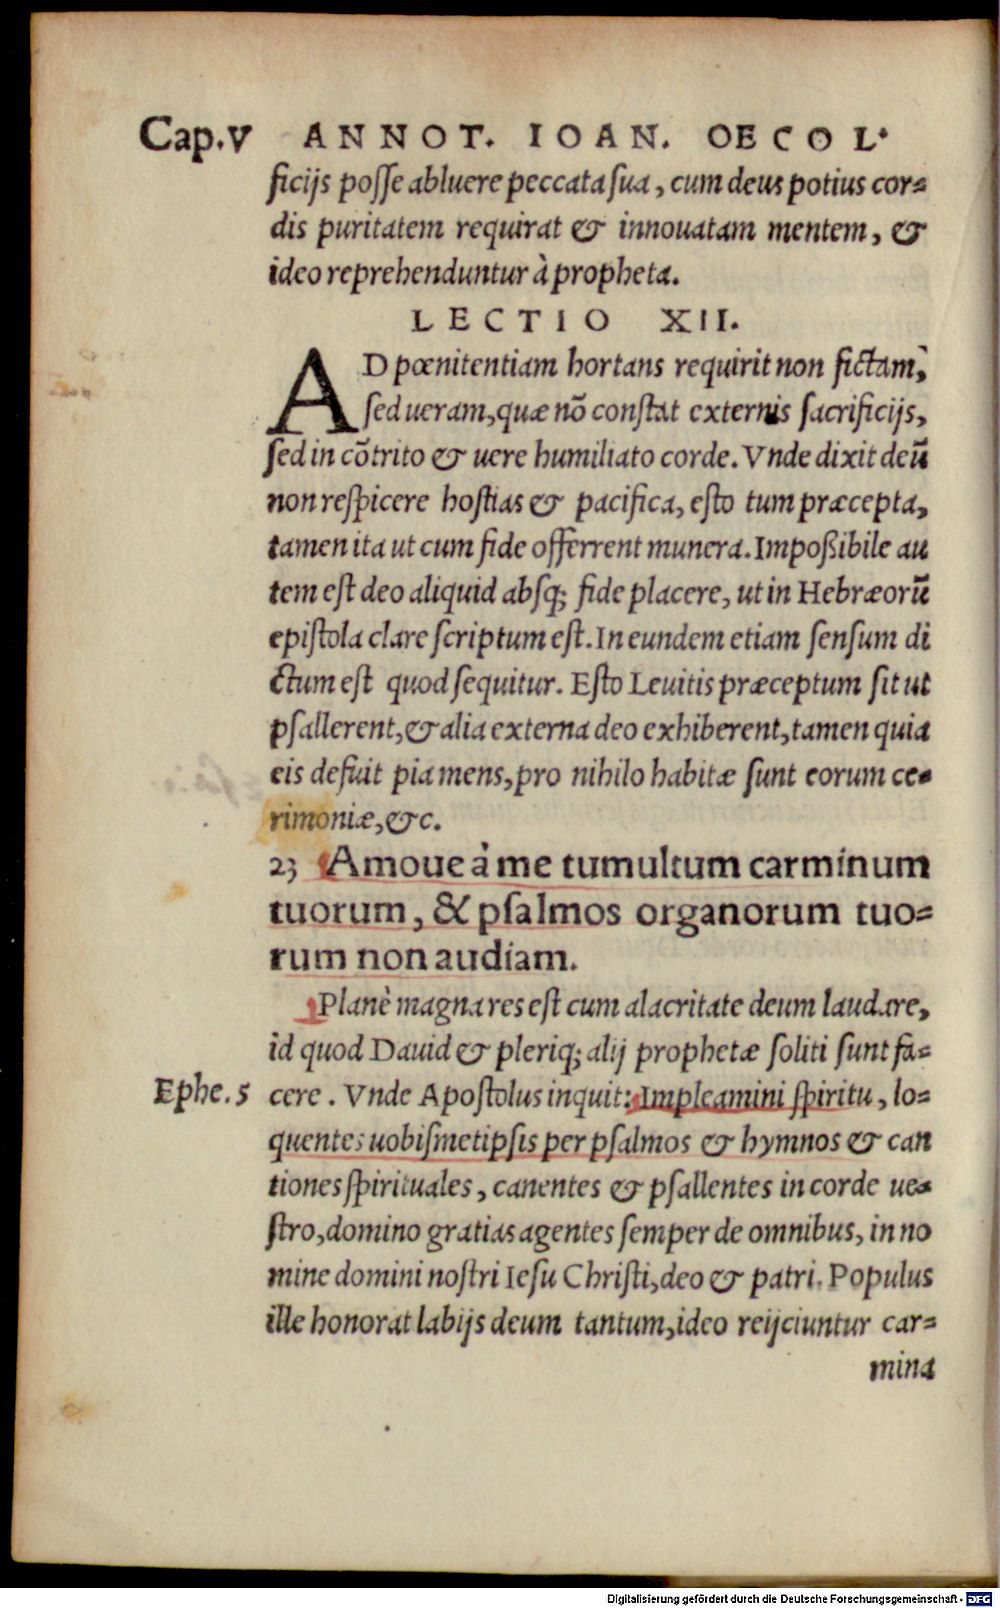 Cap.V ANNOT. IOAN. OECOL.
ficijs posse abluere peccata sua, cum deus potius cor=
dis puritatem requirat & innouatam mentem, &
ideo reprehenduntur à propheta.
LECTIO XII.
AD pœnitentiam hortans requirit non fictam,
sed ueram, quæ nō constat externis sacrificijs,
sed in cōtrito & uere humiliato corde. Vnde dixit deū
non respicere hostias & pacifica, esto tum præcepta,
tamen ita ut cum fide offerrent munera. Impoßibile au
tem est deo aliquid absq; fide placere, ut in Hebræorū
epistola clare scriptum est. In eundem etiam sensum di
ctum est quod sequitur. Esto Leuitis præceptum sit ut
psallerent, & alia externa deo exhiberent, tamen quia
eis defuit pia mens, pro nihilo habitæ sunt eorum ce=
rimoniæ, &c.
23 Amoue à me tumultum carminum
tuorum, & psalmos organorum tuo=
rum non audiam.
Planè magna res est cum alacritate deum laudare,
id quod Dauid & pleriq; alij prophetæ soliti sunt fa=
Ephe. 5 cere. Vnde Apostolus inquit: Impleamini spiritu, lo=
quentes uobismetipsis per psalmos & hymnos & can
tiones spirituales, canentes & psallentes in corde ue=
stro, domino gratias agentes semper de omnibus, in no
mine domini nostri Iesu Christi, deo & patri. Populus
ille honorat labijs deum tantum, ideo reijciuntur car=
mina
Digitalisierung gefördert durch die Deutsche Forschungsgemeinschaft - DFG